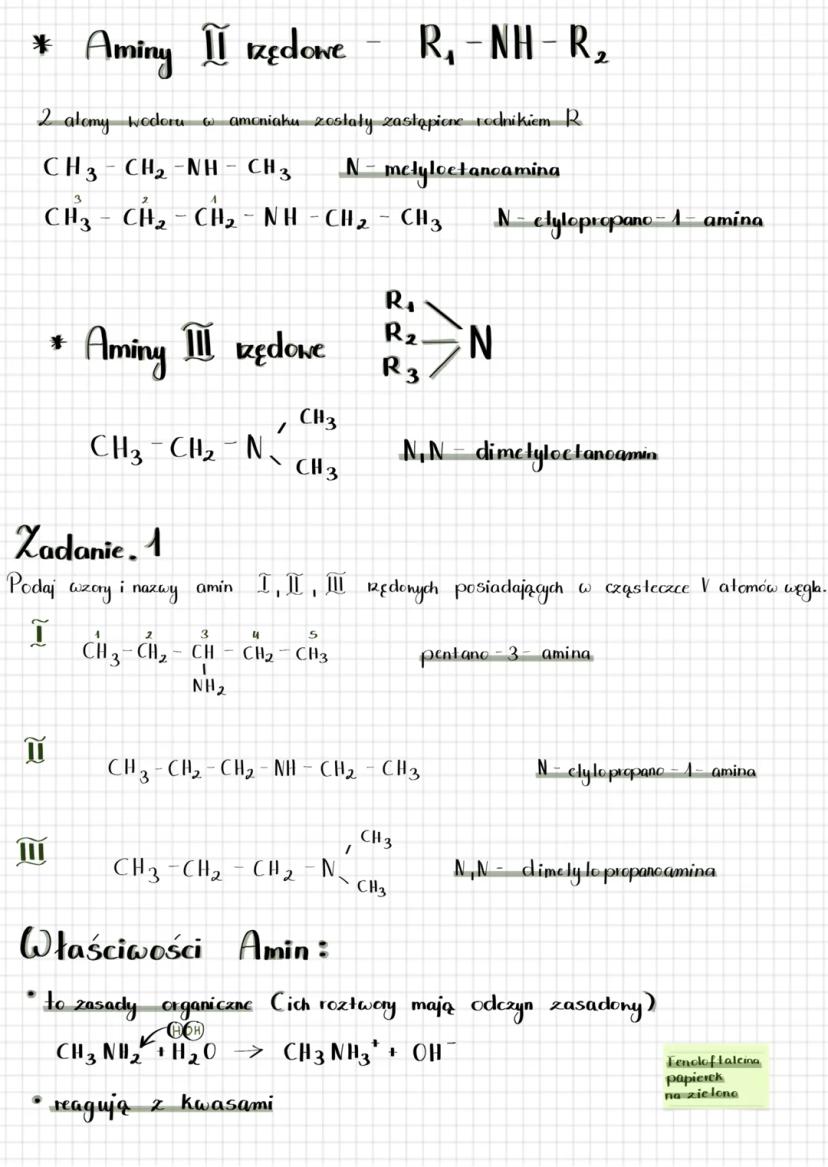 * Aminy II rzędowe - R₁ - NH - R₂
2 atomy wodoru w amoniaku zostały zastąpione rodnikiem R
CH₃ - CH₂ - NH - CH₃ N - metyloetanoamina
3 2 1
CH₃ - CH₂ - CH₂ - NH - CH₂ - CH₃ N - etylopropano - 1 - amina
R₁
* Aminy III rzędowe R₂ N
R₃
CH₃
CH₃ - CH₂ - N N,N - dimetyloetanoamin
CH₃
Zadanie. 1
Podaj wzory i nazwy amin I, II, III rzędowych posiadających w cząsteczce V atomów węgla.
I
1 2 3 4 5
CH₃ - CH₂ - CH - CH₂ - CH₃ pentano - 3 - amina
NH₂
II
CH₃ - CH₂ - CH₂ - NH - CH₂ - CH₃ N - etylopropano - 1 - amina
III
CH₃
CH₃ - CH₂ - CH₂ - N N,N - dimetylopropanoamina
CH₃
Właściwości Amin:
• to zasady organiczne (ich roztwory mają odczyn zasadowy)
H OH
CH₃NH₂ + H₂O → CH₃NH₃⁺ + OH⁻
Fenoloftaleina
papierek
na zielono
• reagują z kwasami